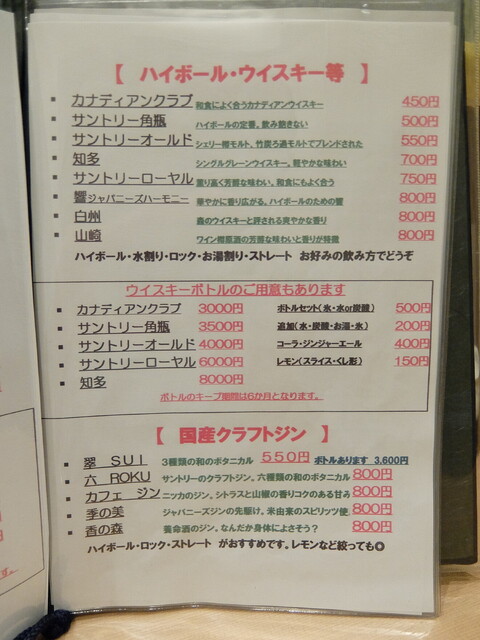 【 ハイボール・ウイスキー等 】
▪ カナディアンクラブ 和食によく合うカナディアンウイスキー 450円
▪ サントリー角瓶 ハイボールの定番。飲み飽きない 500円
▪ サントリーオールド シェリー樽モルト、竹炭ろ過モルトでブレンドされた 550円
▪ 知多 シングルグレーンウイスキー。軽やかな味わい 700円
▪ サントリーローヤル 薫り高く芳醇な味わい。和食にもよく合う 750円
▪ 響ジャパニーズハーモニー 華やかに香り広がる。ハイボールのための響 800円
▪ 白州 森のウイスキーと評される爽やかな香り 800円
▪ 山崎 ワイン樽原酒の芳醇な味わいと香りが特徴 800円
ハイボール・水割り・ロック・お湯割り・ストレート お好みの飲み方でどうぞ
ウイスキーボトルのご用意もあります
▪ カナディアンクラブ 3000円 ボトルセット(氷・水or炭酸) 500円
▪ サントリー角瓶 3500円 追加(水・炭酸・お湯・氷) 200円
▪ サントリーオールド 4000円 コーラ・ジンジャーエール 400円
▪ サントリーローヤル 6000円 レモン(スライス・くし形) 150円
▪ 知多 8000円
ボトルのキープ期間は6か月となります。
【 国産クラフトジン 】
▪ 翠 SUI 3種類の和のボタニカル 550円 ボトルあります 3,600円
▪ 六 ROKU サントリーのクラフトジン。六種類の和のボタニカル 800円
▪ カフェ ジン ニッカのジン、シトラスと山椒の香りコクのある甘み 800円
▪ 季の美 ジャパニーズジンの先駆け。米由来のスピリッツ使 800円
▪ 香の森 養命酒のジン。なんだか身体によさそう? 800円
ハイボール・ロック・ストレート がおすすめです。レモンなど絞っても◎